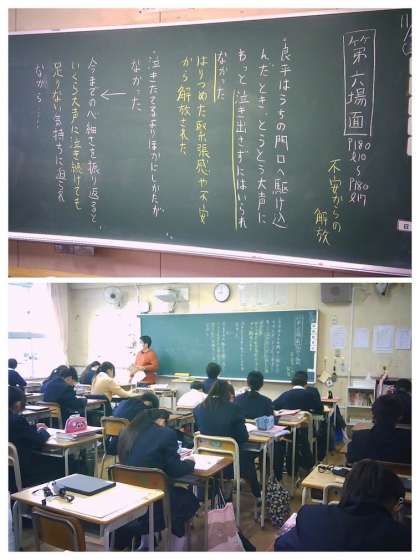 第六場面
P180
l10
〜
P180
l17
不安からの
解放
・良平はうちの門口へ駆け込
んだとき、とうとう大声に
わっと泣き出さずにはいられ
なかった
はりつめた緊張感や不安
から解放された
・泣きたてるよりほかにしかたが
なかった
今までの心細さを振り返ると、
いくら大声に泣き続けても
足りない気持ちに迫られ
ながら…
日
第六場面